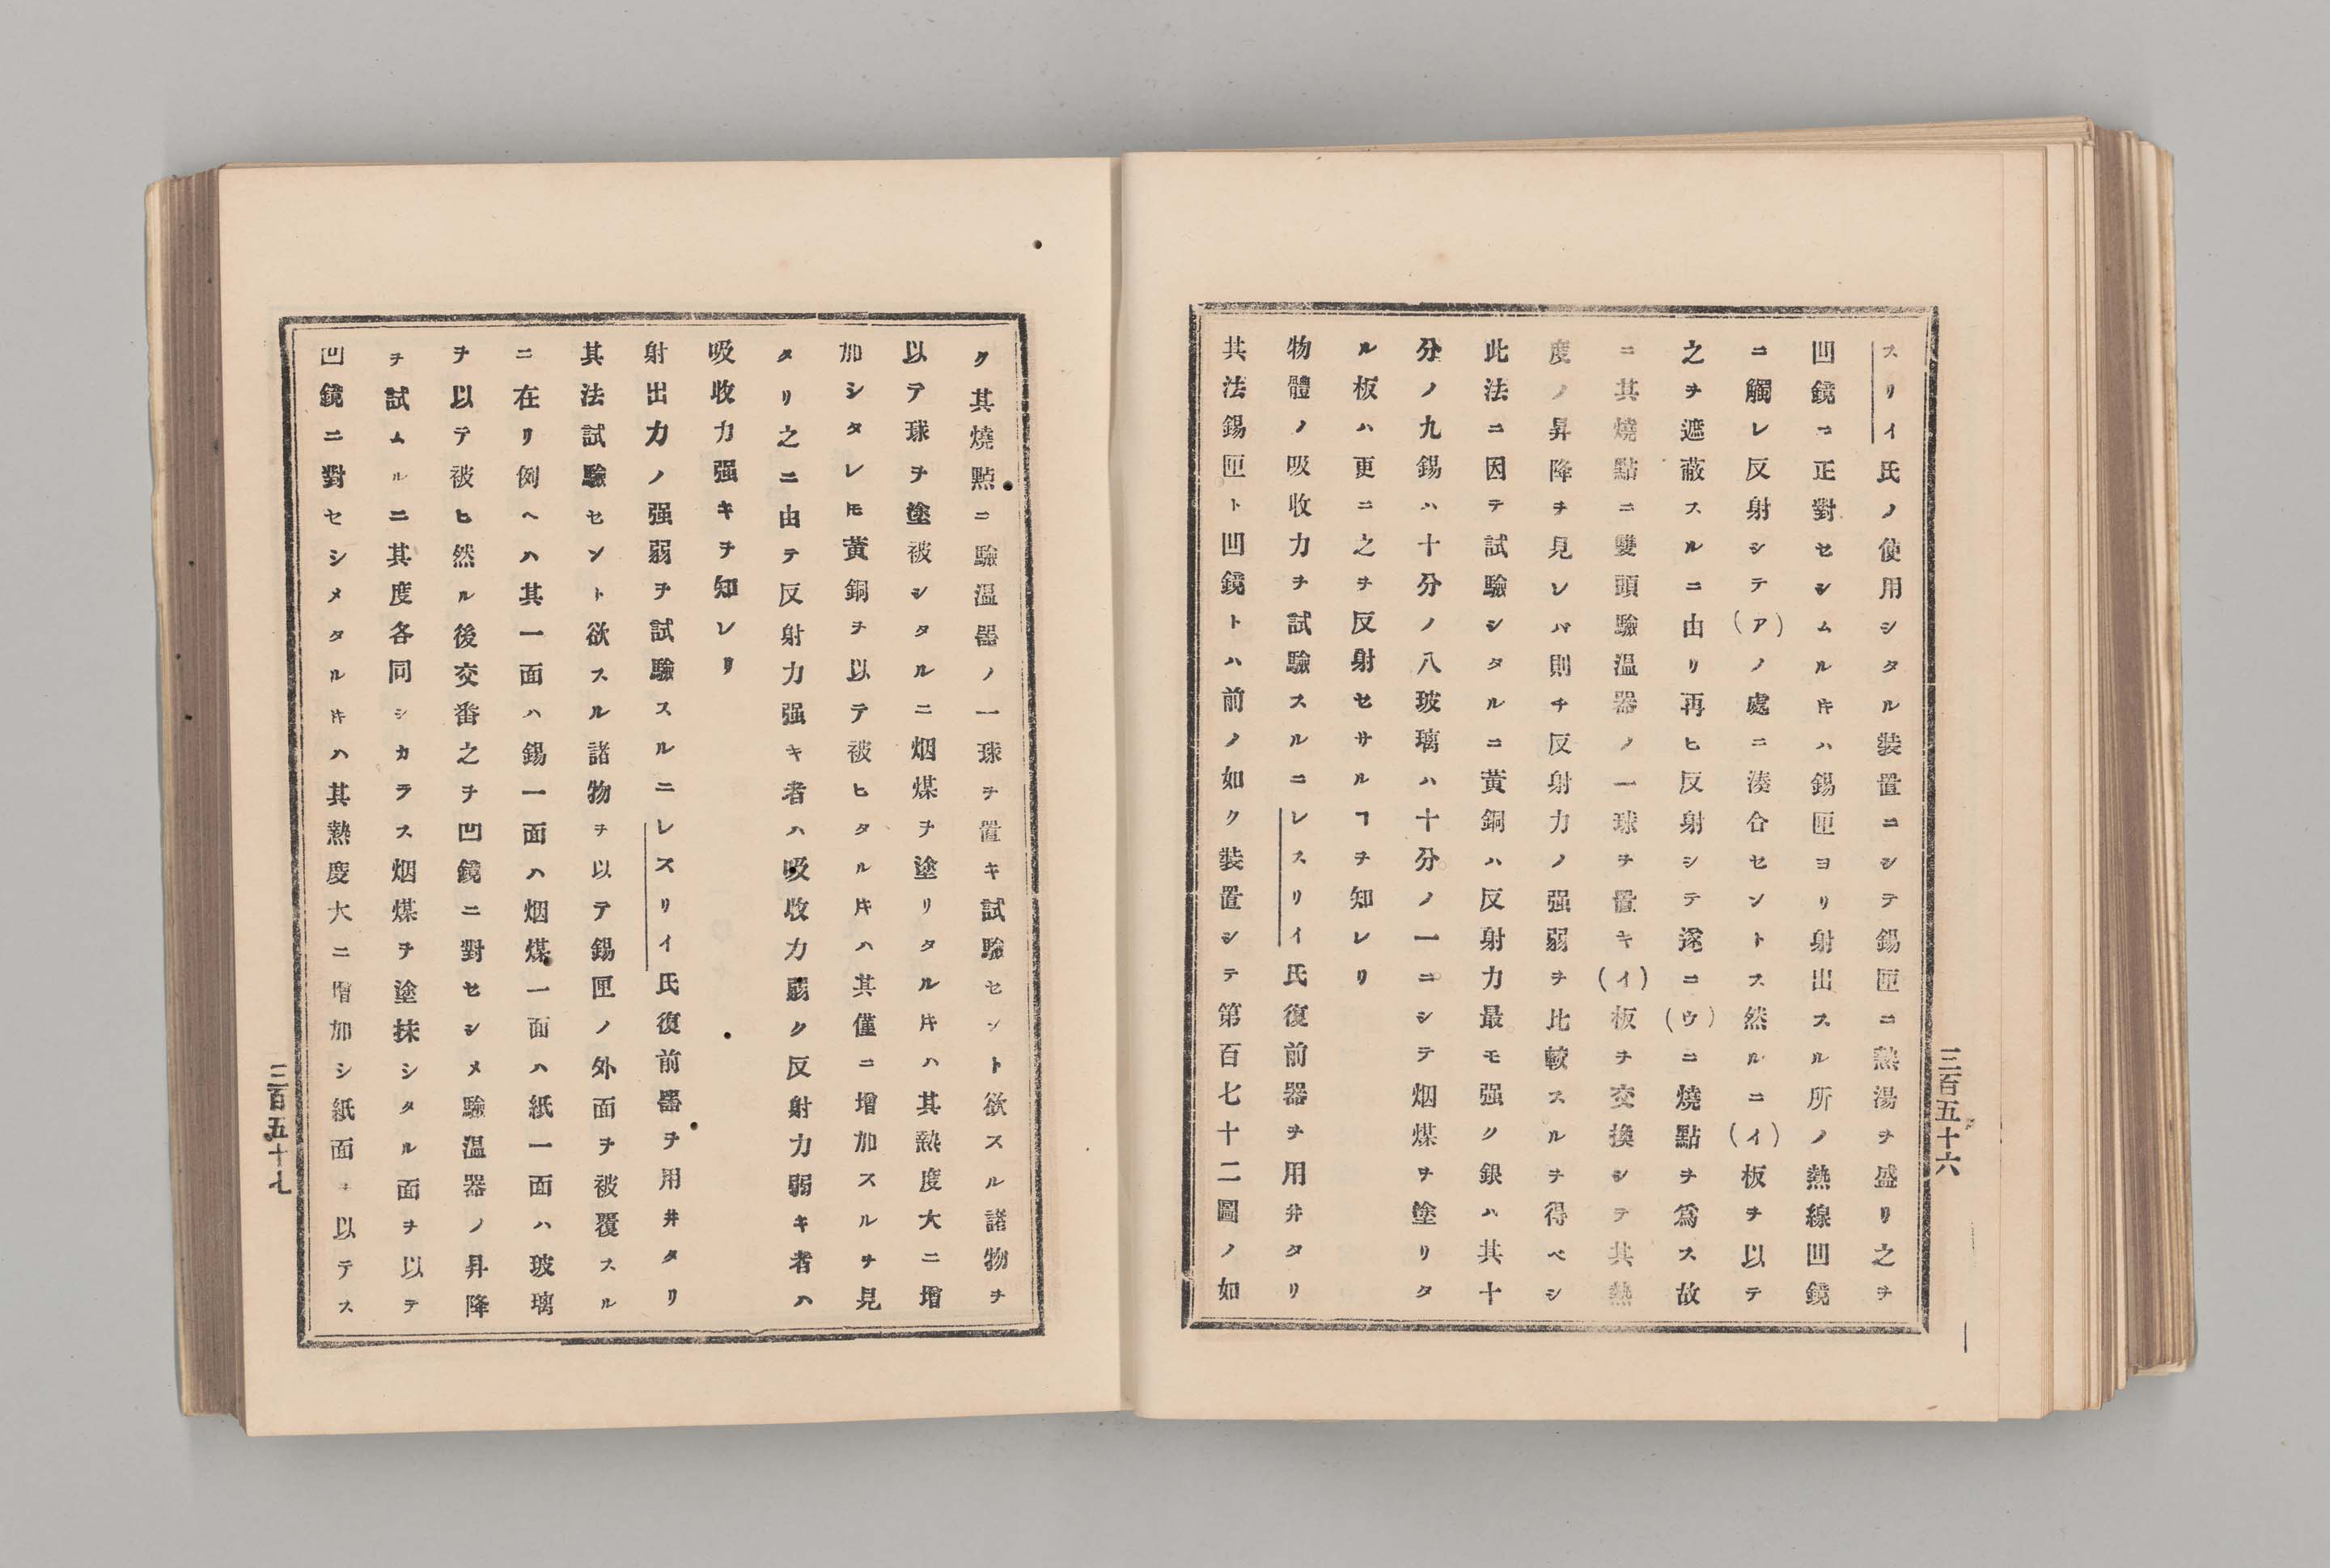 スリイ氏ノ使用シタル裝置ニシテ錫匣ニ熱湯ヲ盛リ之ヲ
凹鏡ニ正對セシムル𪜈ハ錫匣ヨリ射出スル所ノ熱線凹鏡
ニ觸レ反射シテ(ア)ノ處ニ湊合セントス然ルニ(イ)板ヲ以テ
之ヲ遮蔽スルニ由リ再ヒ反射シテ遂ニ(ウ)ニ燒點ヲ爲ス故
ニ其燒點ニ雙頭驗溫器ノ一球ヲ置キ(イ)板ヲ交換シテ其熱
度ノ昇降ヲ見レバ則チ反射力ノ强弱ヲ比較スルヲ得ベシ
此法ニ因テ試驗シタルニ黃銅ハ反射力最モ强ク銀ハ其十
分ノ九錫ハ十分ノ八玻璃ハ十分ノ一ニシテ烟煤ヲ塗リタ
ル板ハ更ニ之ヲ反射セサルヿヲ知レリ
物體ノ吸收力ヲ試驗スルニレスリイ氏復前器ヲ用井タリ
其法錫匣ト凹鏡トハ前ノ如ク裝置シテ第百七十二圖ノ如
三百五十六
ク其燒㸃ニ驗溫器ノ一球ヲ置キ試驗セント欲スル諸物ヲ
以テ球ヲ塗被シタルニ烟煤ヲ塗リタル𪜈ハ其熱度大ニ增
加シタレ𪜈黃銅ヲ以テ被ヒタル𪜈ハ其僅ニ增加スルヲ見
タリ之ニ由テ反射力强キ者ハ吸收力弱ク反射力弱キ者ハ
吸收力强キヲ知レリ
射出力ノ强弱ヲ試驗スルニレスリイ氏復前器ヲ用井タリ
其法試驗セント欲スル諸物ヲ以テ錫匣ノ外面ヲ被覆スル
ニ在リ例ヘハ其一面ハ錫一面ハ烟煤一面ハ紙一面ハ玻璃
ヲ以テ被ヒ然ル後交番之ヲ凹鏡ニ對セシメ驗溫器ノ昇降
ヲ試ムルニ其度各同シカラス烟煤ヲ塗抹シタル面ヲ以テ
凹鏡ニ對セシメタル𪜈ハ其熱度大ニ增加シ紙面ヲ以テス
三百五十七